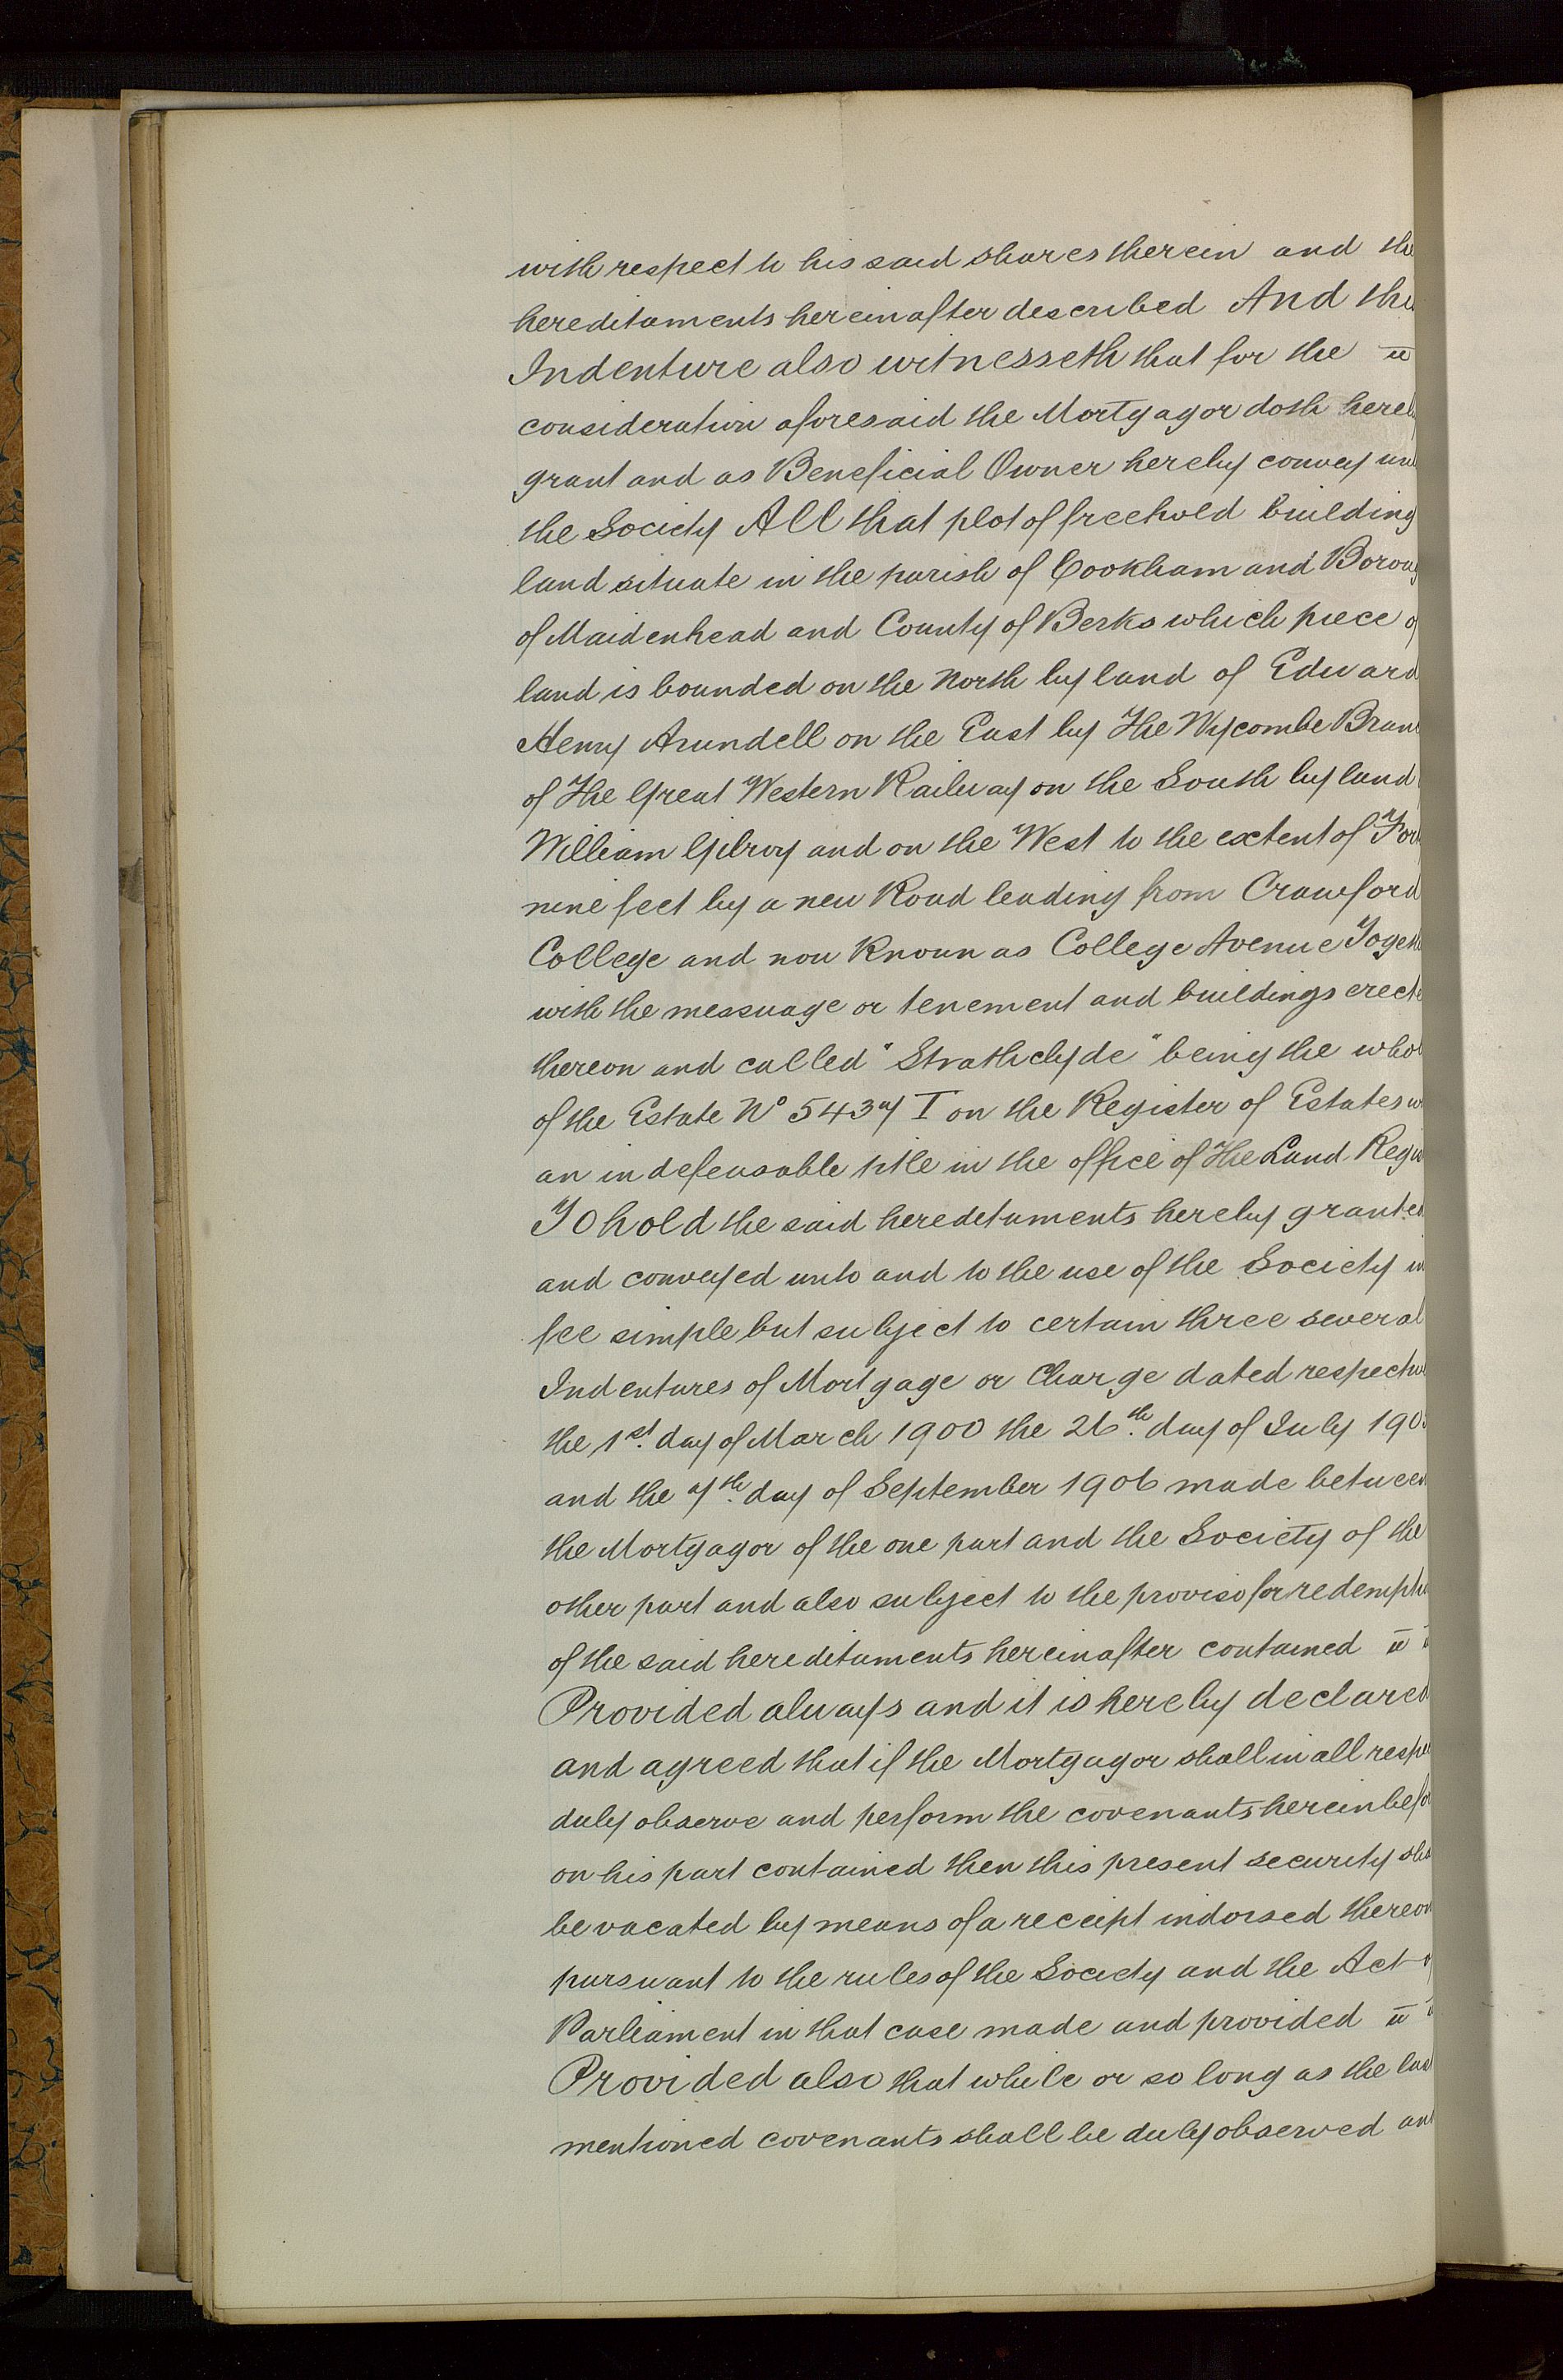 with respect to his said shares therein and the
hereditaments hereinafter described And this
Indenture also witnesseth that for the
consideration aforesaid the Mortgagor doth hereb
grant and as Beneficial Owner hereby convey un
the Society All that plot of freehold building
land situate in the parish of Cookham and Boroug
of Maidenhead and County of Berks which piece o
land is bounded on the North by land of Edward
Henry Arundell on the East by The Wycombe Bran
of The Great Western Railway on the South by land
William Gilroy and on the West to the extent of For
nine feet by a new Road leading from Crauford
College and now known as College Avenue Togeth
with the messuage or tenement and buildings erecte
thereon and called "Strathclyde" being the who
of the Estate No 5437 I on the Register of Estates w
an indefeasable title in the office of The Land Regis
To hold the said hereditaments hereby granted
and conveyed unto and to the use of the Society in
fee simple but subject to certain three several
Indentures of Mortgage or Charge dated respectiv
the 1st. day of March 1900 the 26th. day of July 190
and the 7th. day of September 1906 made between
the Mortgagor of the one part and the Society of the
other part and also subject to the proviso for redempti
of the said hereditaments hereinafter contained
Provided always and it is hereby declared
and agreed that if the Mortgagor shall in all respe
duly observe and perform the covenants hereinbefo
on his part contained then this present security sha
be vacated by means of a receipt indorsed thereon
pursuant to the rules of the Society and the Act o
Parliament in that case made and provided
Provided also that while or so long as the last
mentioned covenants shall be duly observed an